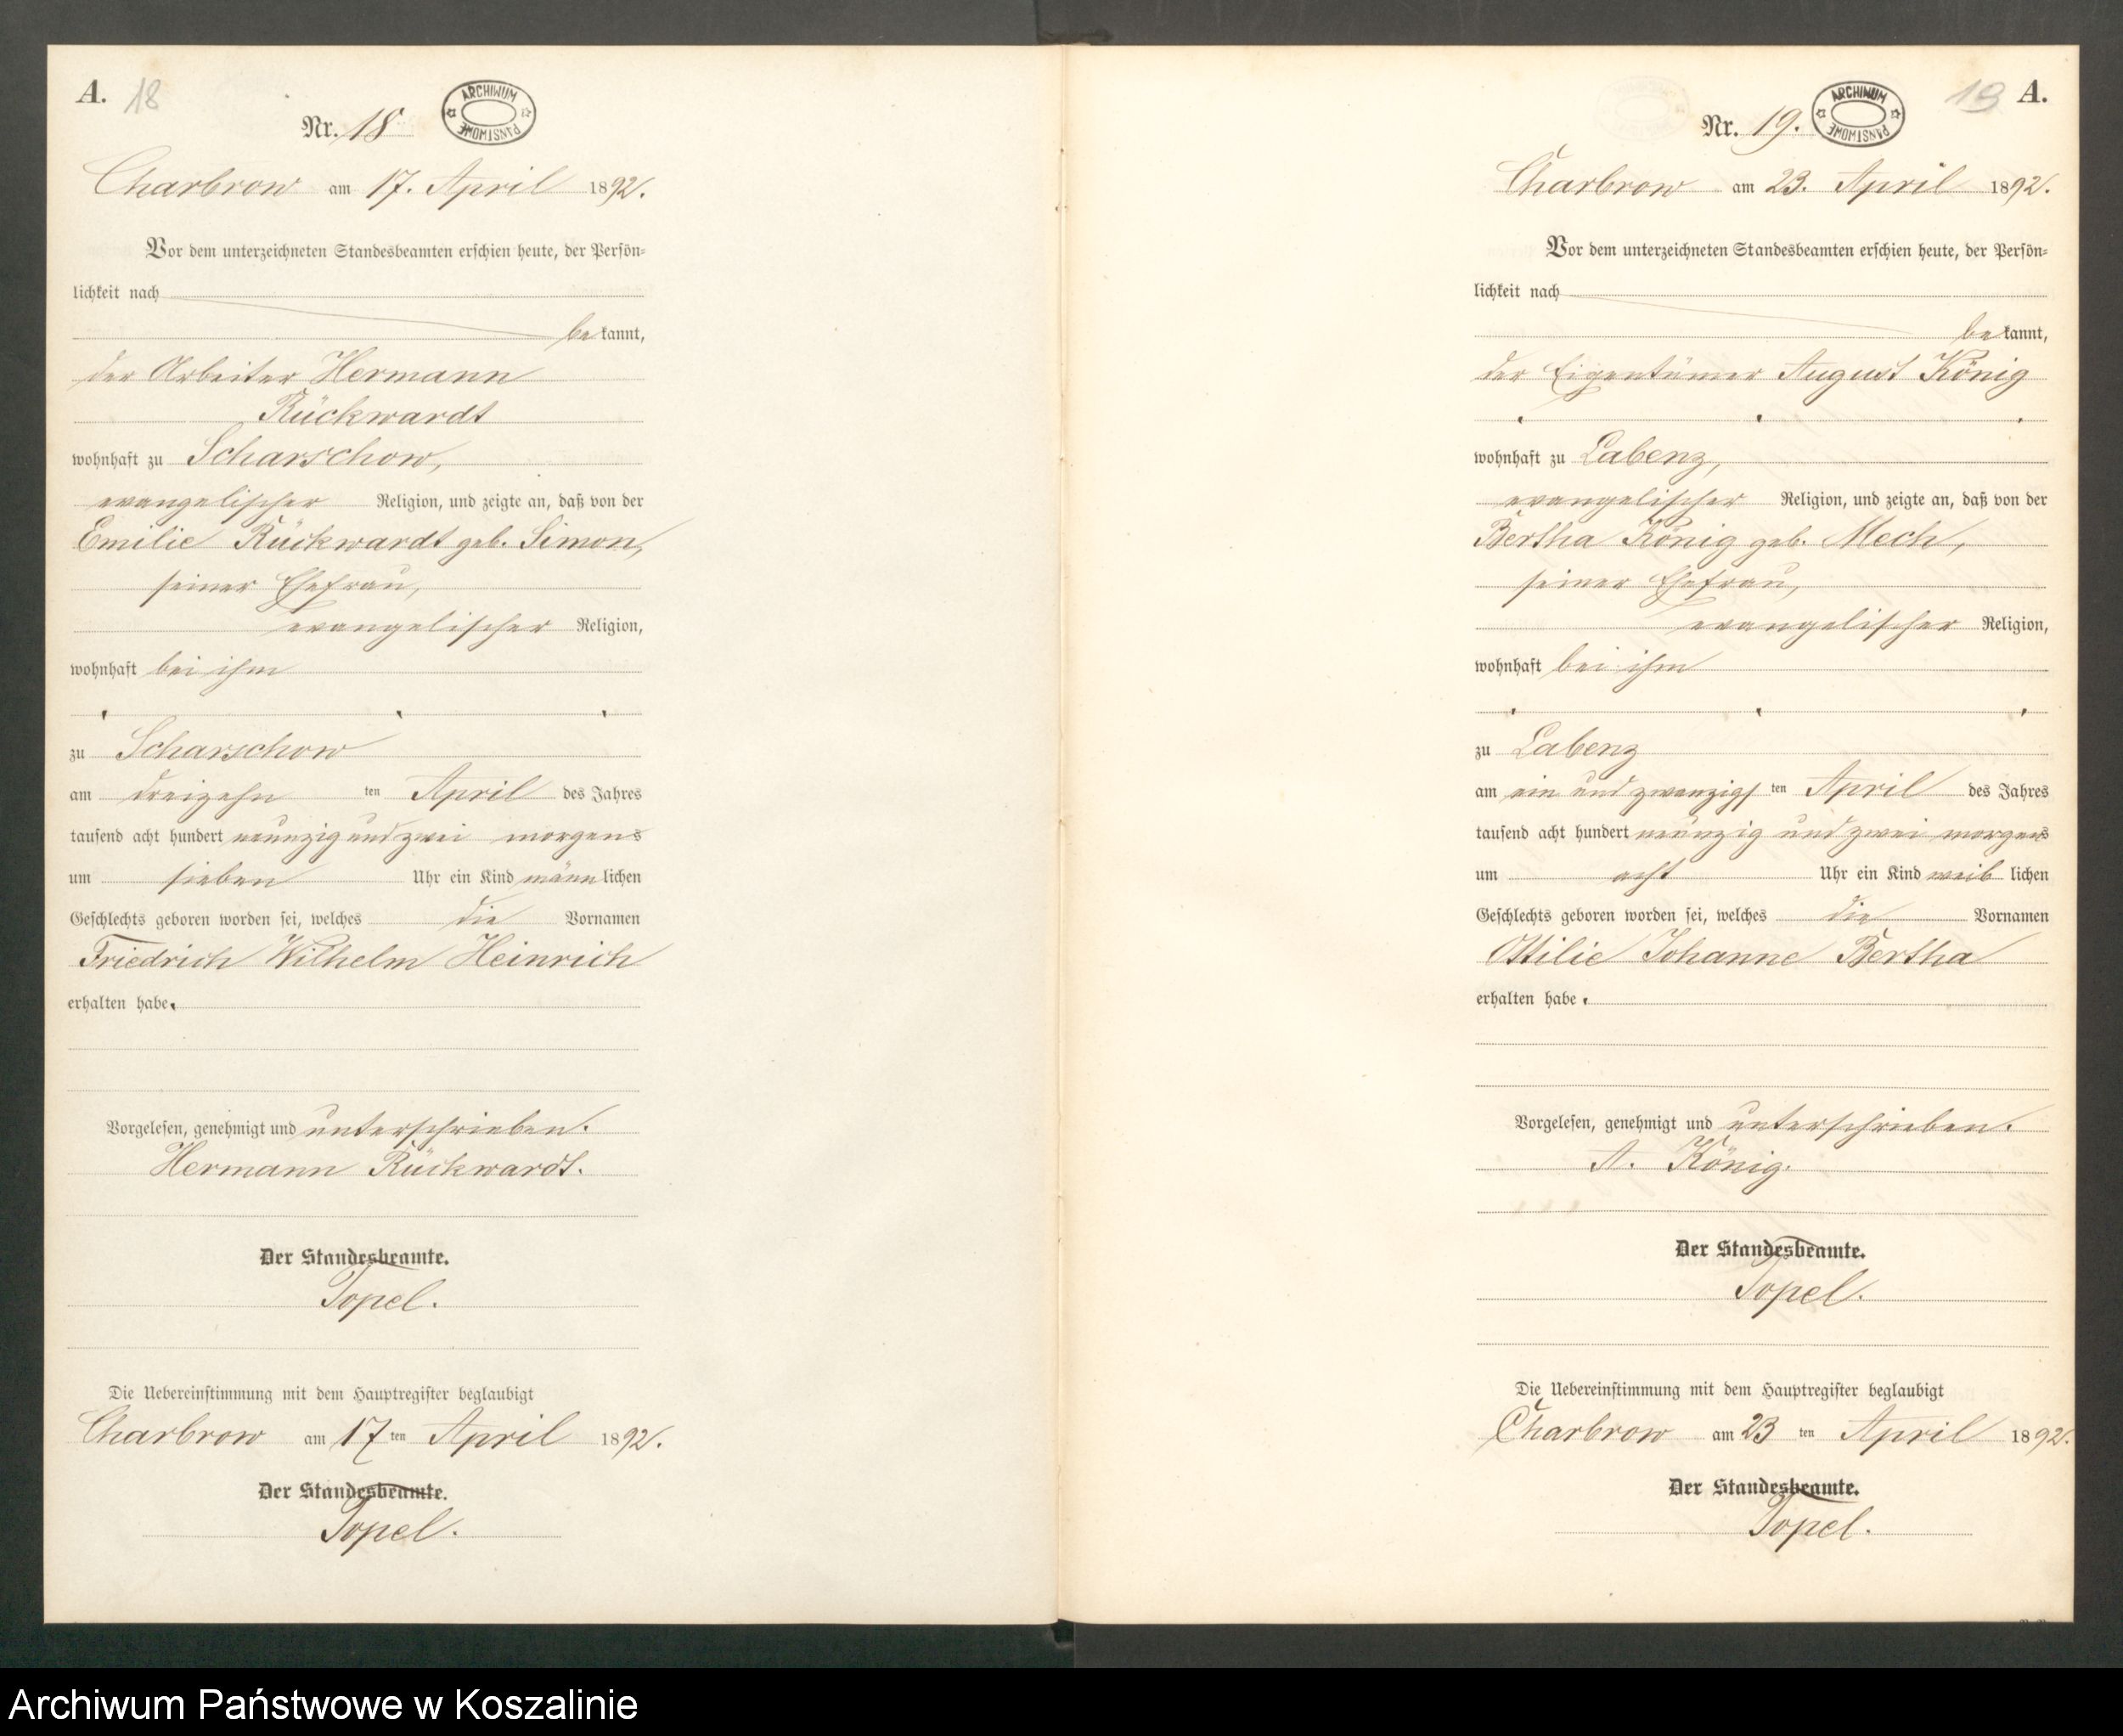 A. 18
Nr. 18
ARCHIWUM PAŃSTWOWE
Charbrow am 17. April 1892.
Vor dem unterzeichneten Standesbeamten erschien heute, der Persön-
lichkeit nach
bekannt,
der Arbeiter Hermann
Rückwardt
wohnhaft zu Scharschow,
evangelischer Religion, und zeigte an, daß von der
Emilie Rückwardt geb. Simon,
seiner Ehefrau,
evangelischer Religion,
wohnhaft bei ihm
zu Scharschow
am dreizehn ten April des Jahres
tausend acht hundert neunzig und zwei morgens
um sieben Uhr ein Kind männlichen
Geschlechts geboren worden sei, welches die Vornamen
Friedrich Wilhelm Heinrich
erhalten habe.
Vorgelesen, genehmigt und unterschrieben.
Hermann Rückwardt.
Der Standesbeamte.
Topel.
Die Uebereinstimmung mit dem Hauptregister beglaubigt
Charbrow am 17 ten April 1892.
Der Standesbeamte.
Topel.
19 A.
Nr. 19.
ARCHIWUM PAŃSTWOWE
Charbrow am 23. April 1892.
Vor dem unterzeichneten Standesbeamten erschien heute, der Persön-
lichkeit nach
bekannt,
der Eigentümer August König
wohnhaft zu Labenz,
evangelischer Religion, und zeigte an, daß von der
Bertha König geb. Mech,
seiner Ehefrau,
evangelischer Religion,
wohnhaft bei ihm
zu Labenz
am ein und zwanzigs ten April des Jahres
tausend acht hundert neunzig und zwei morgens
um acht Uhr ein Kind weib lichen
Geschlechts geboren worden sei, welches die Vornamen
Ottilie Johanne Bertha
erhalten habe.
Vorgelesen, genehmigt und unterschrieben.
A. König.
Der Standesbeamte.
Topel.
Die Uebereinstimmung mit dem Hauptregister beglaubigt
Charbrow am 23 ten April 1892.
Der Standesbeamte.
Topel.
Archiwum Państwowe w Koszalinie